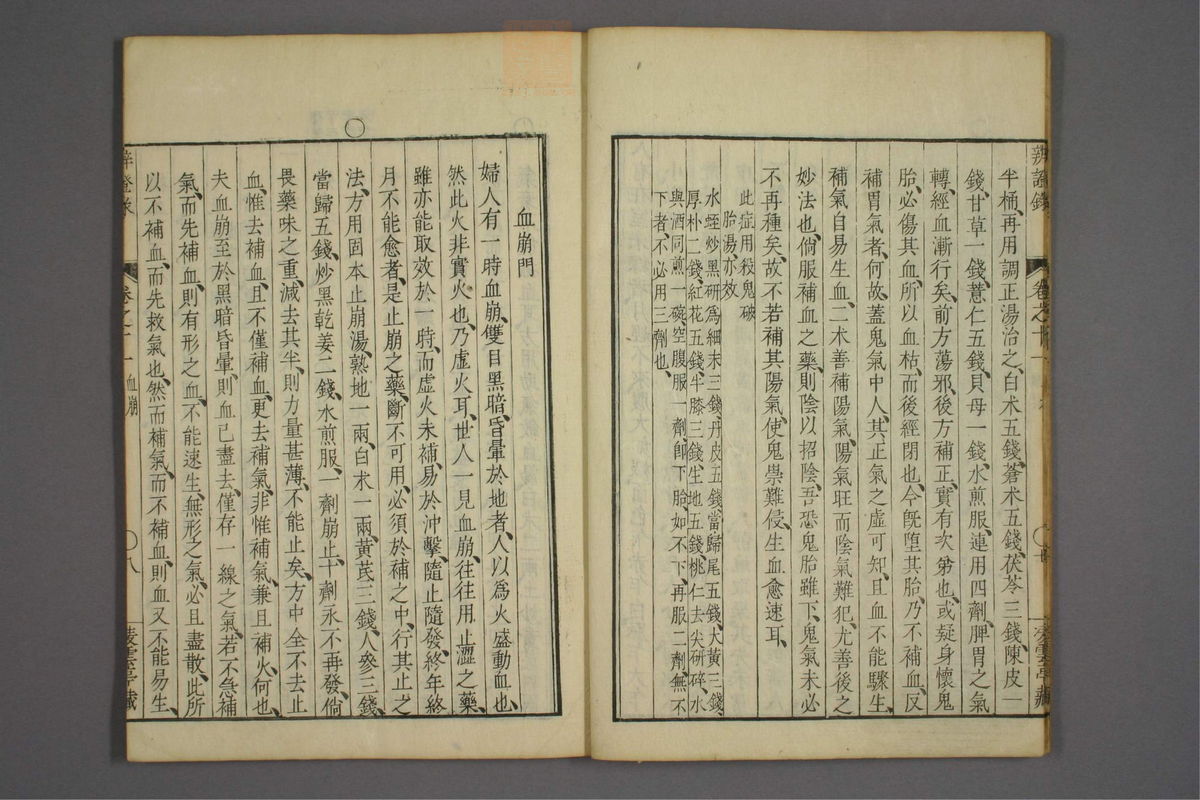 半桶、再用調正湯治之、白朮五錢、蒼朮五錢、茯苓三錢、陳皮一
錢、甘草一錢、薏仁五錢、貝母一錢、水煎服、連用四劑、脾胃之氣
轉、經血漸行矣、前方蕩邪、後方補正、實有次第也、或疑身懷鬼
胎、必傷其血、所以血枯、而後經閉也、今旣墮其胎、乃不補血、反
補胃氣者、何故、蓋鬼氣中人、其正氣之虛可知、且血不能驟生、
補氣自易生血、二朮善補陽氣、陽氣旺而陰氣難犯、尤善後之
妙法也、倘服補血之藥、則陰以招陰、吾恐鬼胎雖下、鬼氣未必
不再種矣、故不若補其陽氣、使鬼祟難侵、生血愈速耳、
此症用殺鬼破
胎湯亦效
水蛭炒黑研爲細末三錢、丹皮五錢、當歸尾五錢、大黃三錢、
厚朴二錢、紅花五錢、半膝三錢、生地五錢、桃仁去尖研碎、水
與酒同煎一碗、空腹服一劑、卽下胎、如不下、再服二劑、無不
下者、不必用三劑也、
辨證錄
卷之十一
凌雲亭藏
血崩門
婦人有一時血崩、雙目黑暗、昏暈於地者、人以爲火盛動血也、
然此火非實火也、乃虛火耳、世人一見血崩、往往用止澀之藥、
雖亦能取效於一時、而虛火未補、易於沖擊、隨止隨發、終年終
月不能愈者、是止崩之藥、斷不可用、必須於補之中、行其止之
法、方用固本止崩湯、熟地一兩、白朮一兩、黃芪三錢、人參三錢、
當歸五錢、炒黑乾姜二錢、水煎服、一劑崩止、十劑永不再發、倘
畏藥味之重、減去其半、則力量甚薄、不能止矣、方中全不去止
血、惟去補血、且不僅補血、更去補氣、非惟補氣、兼且補火、何也、
夫血崩至於黑暗昏暈、則血已盡去、僅存一線之氣、若不急補
氣、而先補血、則有形之血、不能速生、無形之氣、必且盡散、此所
以不補血、而先救氣也、然而補氣、而不補血、則血又不能易生、
卷之十一 血崩
八
凌雲亭藏